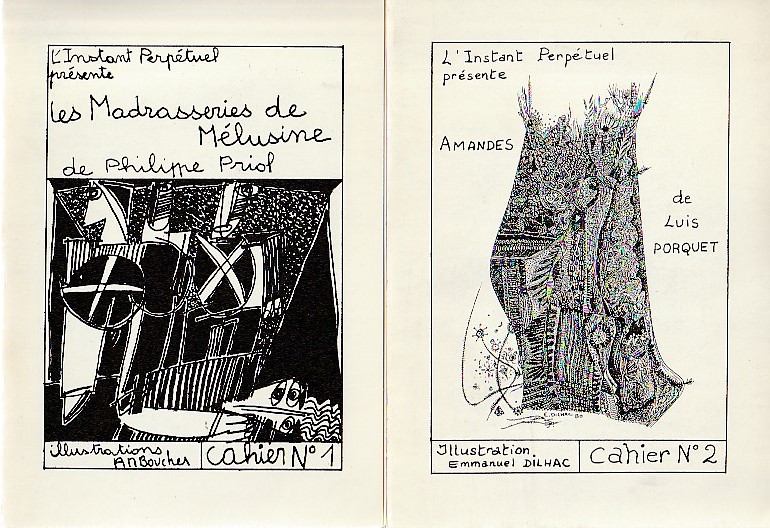 L'Instant Perpétuel
présente
Les Madrasseries de
Mélusine
de Philippe Priol
illustrations
An Boucher
Cahier N° 1
L'Instant Perpétuel
présente
AMANDES
de
LUIS
PORQUET
E. DILHAC 80
Illustration
Emmanuel DILHAC
Cahier N° 2